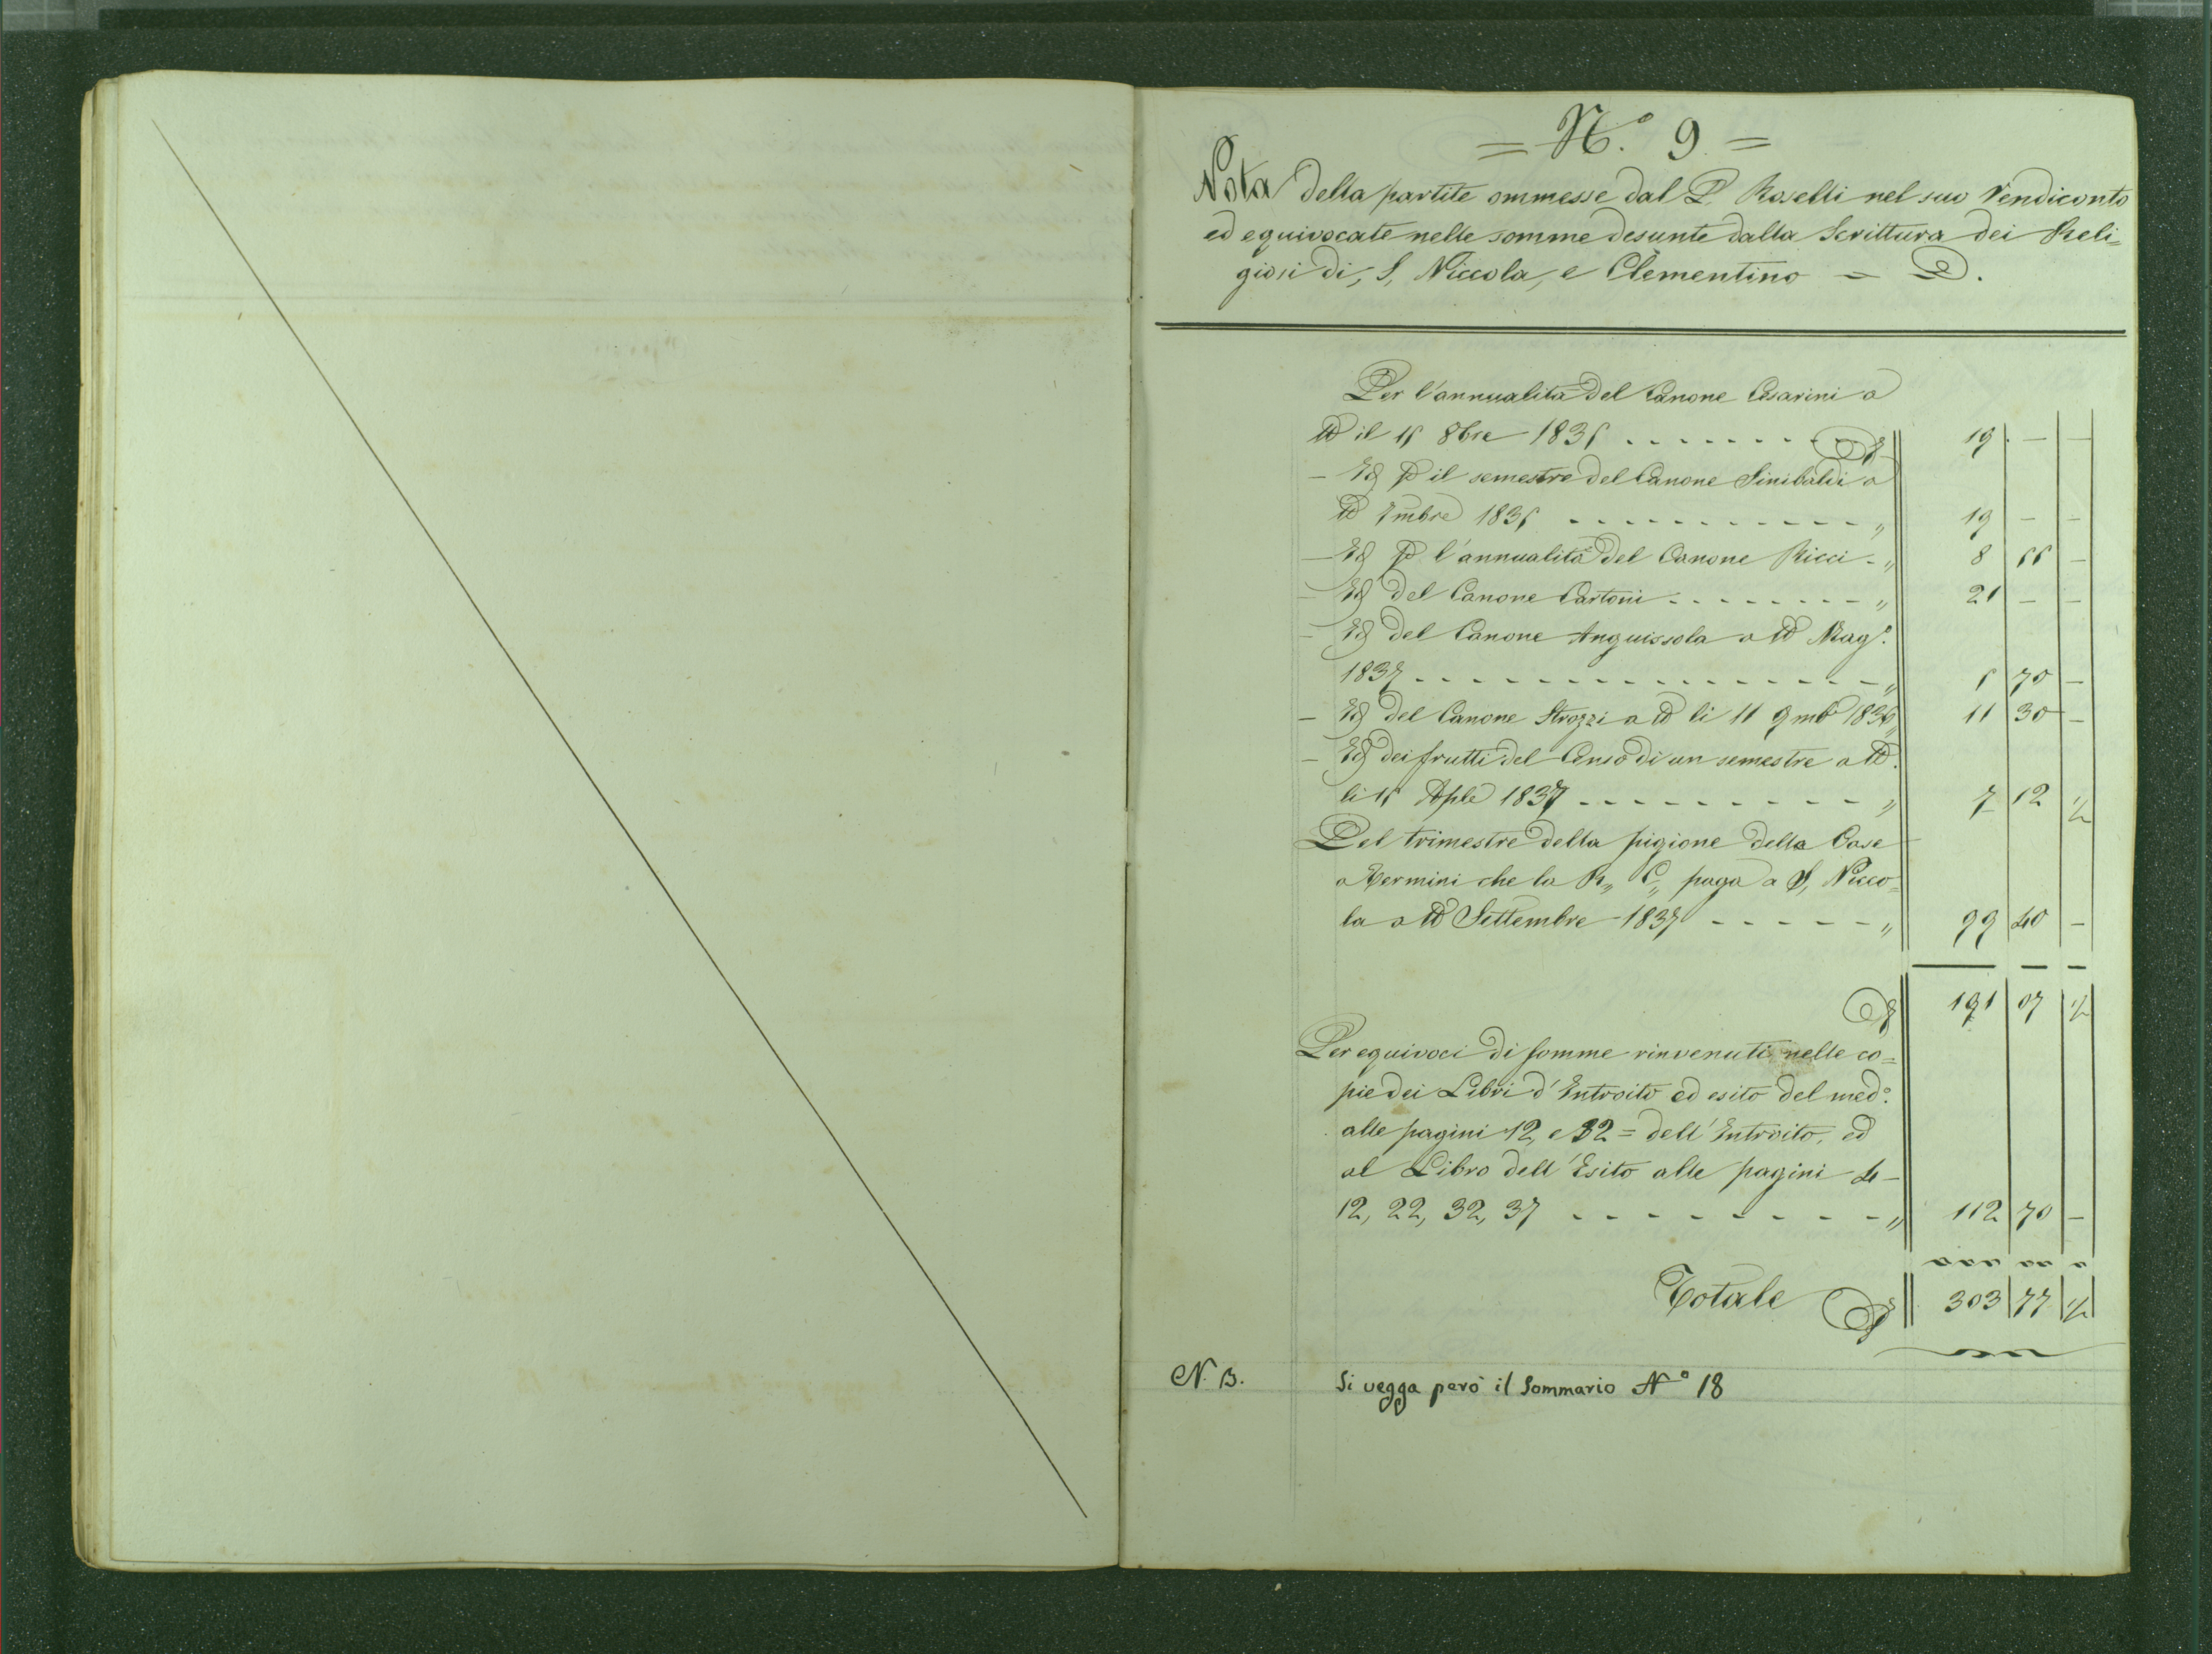 = N.° 9 =
Nota della partite ommesse dal P. Roselli nel suo Rendiconto
ed equivocate nelle somme desunte dalla Scrittura dei Reli=
giosi di, S, Niccola, e Clementino =
Per l'annualità del Canone Cesarini a
tto il 15 8bre 1835 19 — —
— Id p il semestre del Canone Sinibaldi a
tto 7mbre 1835 " 19 — —
— Id p l'annualità del Canone Ricci - " 8 55 —
— Id del Canone Cartoni " 21 — —
— Id del Canone Anguissola a tto Mag.°
1837 " 5 70 —
— Id del Canone Strozzi a tto li 11 9mb 1836 " 11 30 —
— Id dei frutti del Censo di un semestre a tto
li 15 Aple 1837 " 7 12 1/2
Del trimestre della pigione della Case
a Termini che la R,, C,, paga a S, Nicco=
la a tto Settembre 1837 " 99 40 —
191 07 1/2
Per equivoci di somme rinvenuti nelle co=
pie dei Libri d'Introito ed esito del med.°
alle pagini 12, e 32 = dell'Introito, ed
al Libro dell'Esito alle pagini 4 —
12, 22, 32, 37 " 112 70 —
Totale 303 77 1/2
N. B. Si vegga però il Sommario N° 18